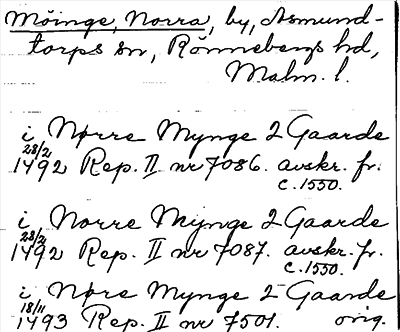 Möinge, Norra, by, Asmund-
torps sn, Rönnebergs hd,
Malm. l.
i Nørre Mynge 2 Gaarde
28/2
1492 Rep. II nr 7086. avskr. fr.
c. 1550.
i Norre Mijnge 2 Gaarde
28/2
1492 Rep. II nr 7087. avskr. fr.
c. 1550.
i Nøre Mynge 2 Gaarde
18/11
1493 Rep. II nr 7501. orig.